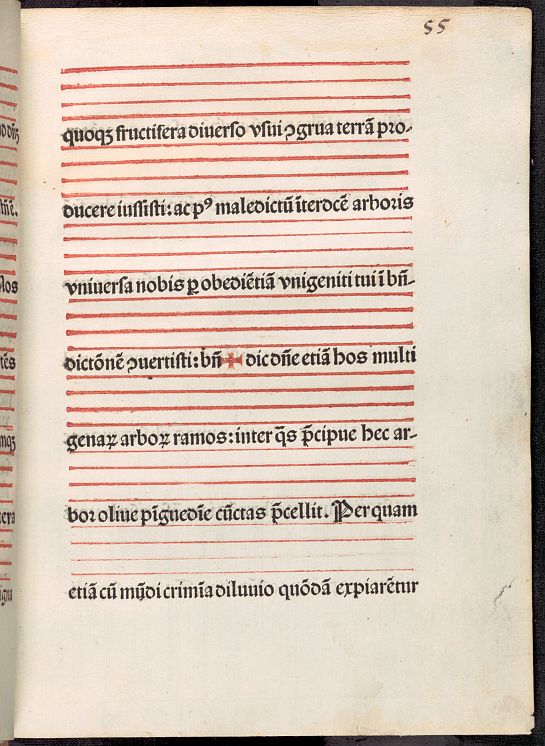 55
quoqꝫ fructifera diuerso vsui ↄgrua terrā pro-
ducere iussisti: ac pꝰ maledictū īterdcē arboris
vniuersa nobis ꝑ obediētiā vnigeniti tui ī bn̄-
dictōnē ↄuertisti: bn̄ ✠ dic dn̄e etiā hos multi
genaꝝ arboꝝ ramos: inter q̄s p̄cipue hec ar-
bor oliue pīguedīe cūctas p̄cellit. Per quam
etiā cū mūdi crimīa diluuio quōdā expiarētur